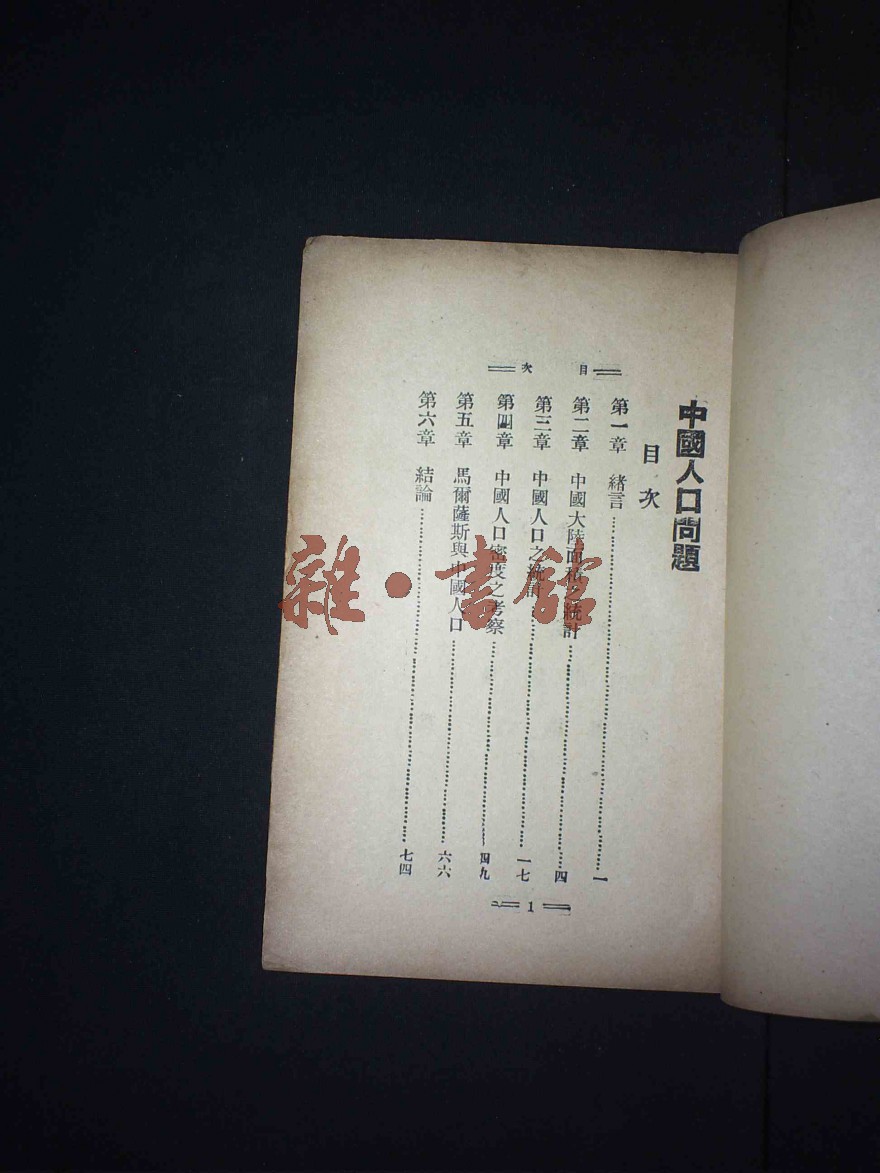 中國人口問題
目次
目次
第一章 緒言 一
第二章 中國大陸面積之統計 四
第三章 中國人口之統計 一七
第四章 中國人口密度之考察 四九
第五章 馬爾薩斯與中國人口 六六
第六章 結論 七四
1
雜·書館